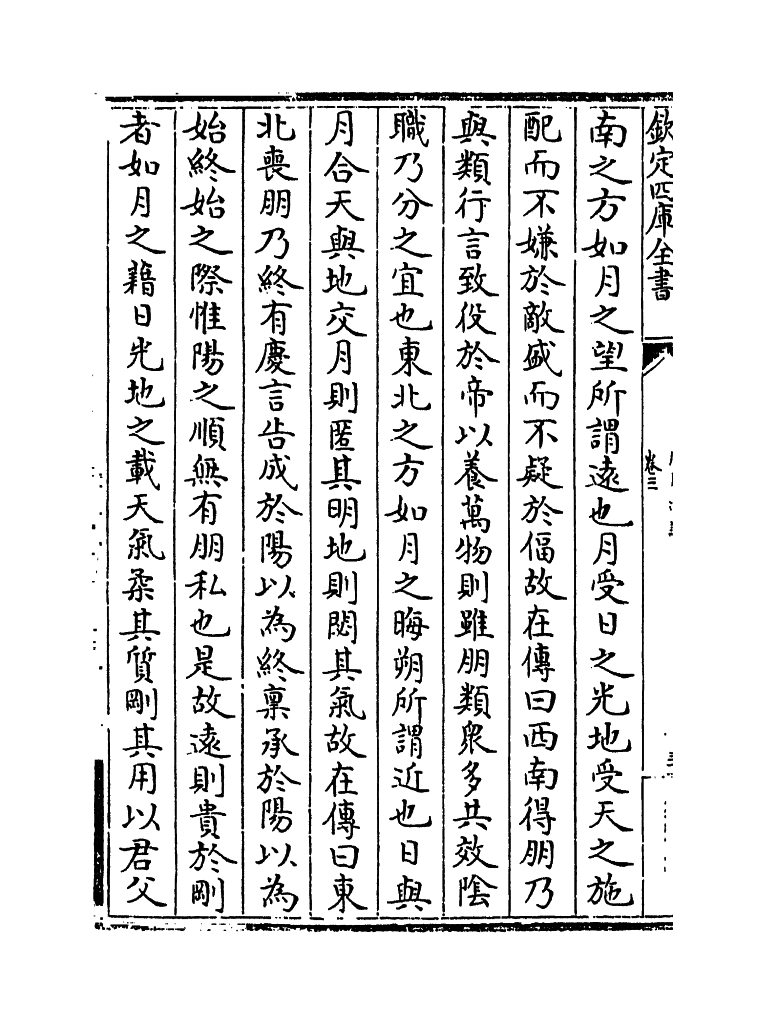 欽定四庫全書
卷三
南之方如月之望所謂遠也月受日之光地受天之施
配而不嫌於敵盛而不疑於偪故在傳曰西南得朋乃
與類行言致役於帝以養萬物則雖朋類衆多共效隂
職乃分之宜也東北之方如月之晦朔所謂近也日與
月合天與地交月則匿其明地則閟其氣故在傳曰東
北喪朋乃終有慶言告成於陽以為終稟承於陽以為
始終始之際惟陽之順無有朋私也是故遠則貴於剛
者如月之藉日光地之載天氣柔其質剛其用以君父